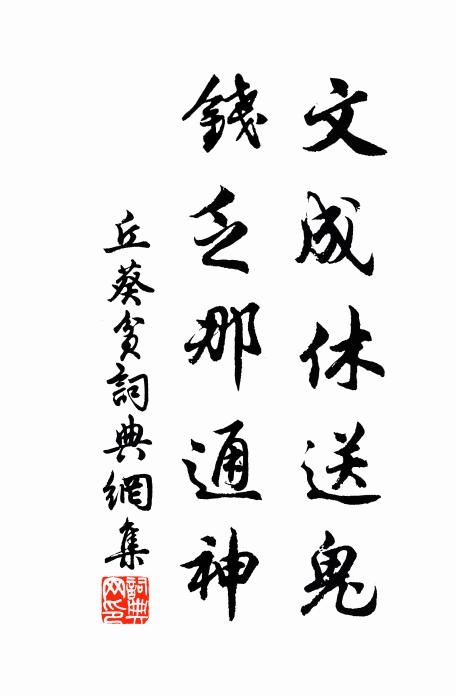 文成休送鬼
錢乏那通神
丘葵貧詞典網集
詞典
网印